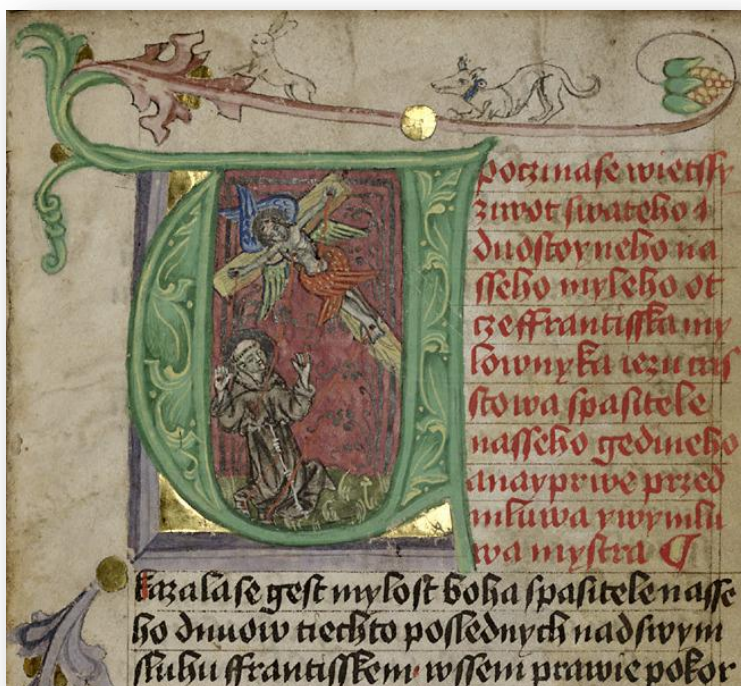 poczinase wietssy
ziwot swateho a
duostoyneho na
sseho myleho ot
cze ffrantisska my
lownyka iezu cris
stowa spasitele
nasseho gedineho
a nayprwe przed
mluwa y wymlu
wa mystra
kazala se gest mylost boha spasitele nasse
ho dnuow tiechto poslednych nad swym
sluhu ffrantisskem wssem prawie pokor